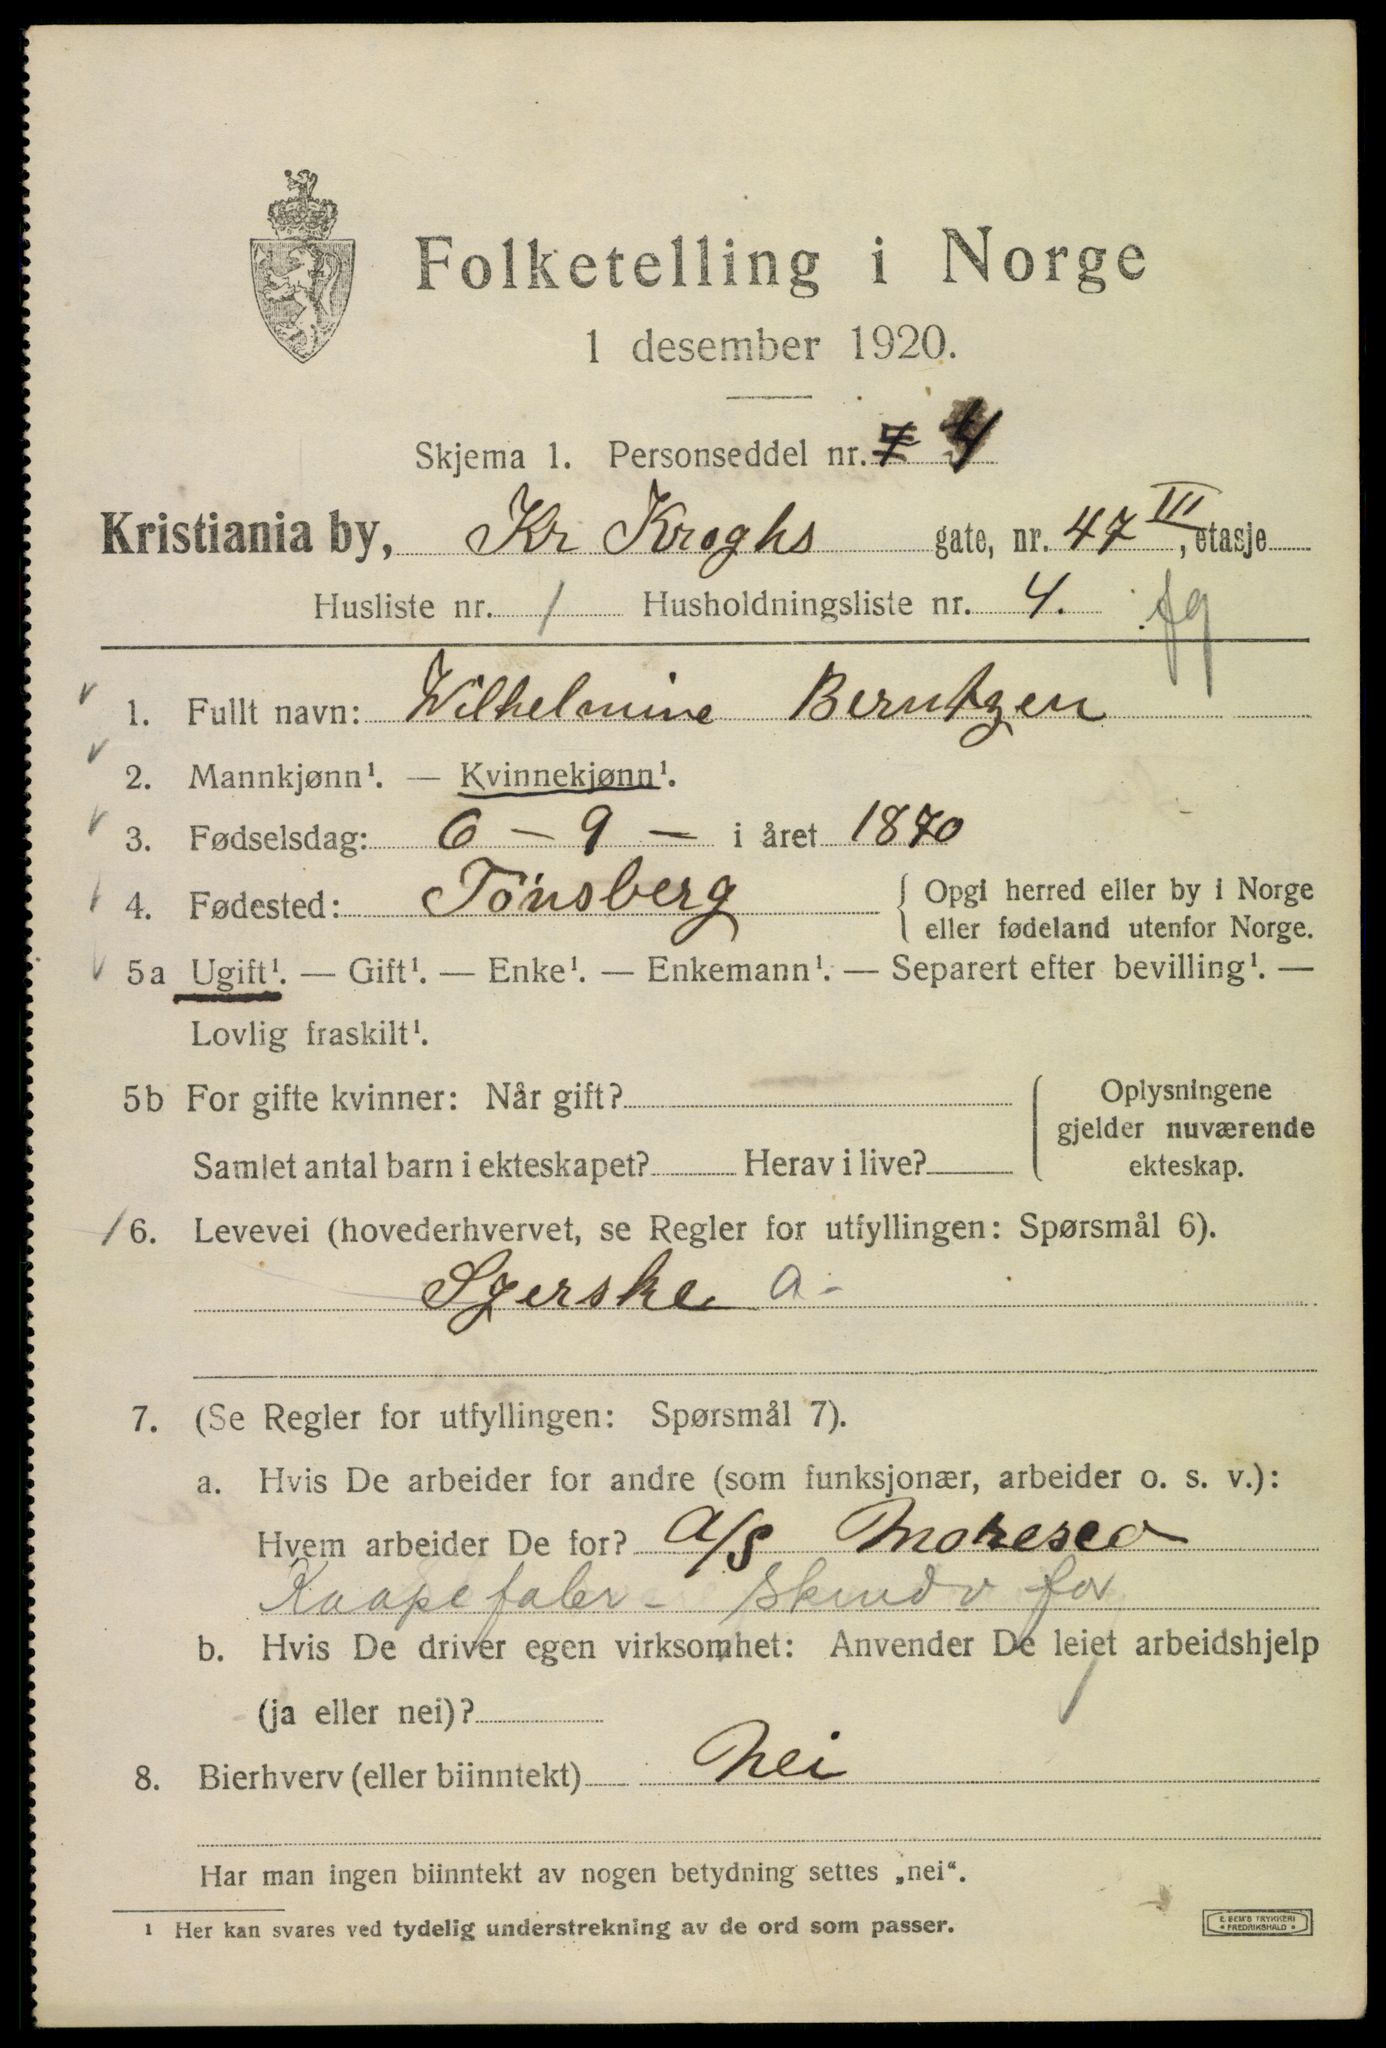 Folketelling i Norge
1 desember 1920.
Skjema 1. Personseddel nr. 7 4
Kristiania by, Kr Kroghs gate, nr. 47 III, etasje
Husliste nr. 1 Husholdningsliste nr. 4. fg
1. Fullt navn: Wilhelmine Berntzen
2. Mannkjønn¹. — Kvinnekjønn¹.
3. Fødselsdag: 6 - 9 - i året 1870
4. Fødested: Tönsberg { Opgi herred eller by i Norge
eller fødeland utenfor Norge.
5a Ugift¹. — Gift¹. — Enke¹. — Enkemann¹. — Separert efter bevilling¹. —
Lovlig fraskilt¹.
5b For gifte kvinner: Når gift? Oplysningene
gjelder nuværende
Samlet antal barn i ekteskapet? Herav i live? ekteskap.
6. Levevei (hovederhvervet, se Regler for utfyllingen: Spørsmål 6).
Syerske a-
7. (Se Regler for utfyllingen: Spørsmål 7).
a. Hvis De arbeider for andre (som funksjonær, arbeider o. s. v.):
Hvem arbeider De for? A/S Moresco
Kaapefabr -
b. Hvis De driver egen virksomhet: Anvender De leiet arbeidshjelp
(ja eller nei)?
8. Bierhverv (eller biinntekt) Nei
Har man ingen biinntekt av nogen betydning settes „nei“.
¹ Her kan svares ved tydelig understrekning av de ord som passer.
E. SEM'S TRYKKERI
FREDRIKSHALD